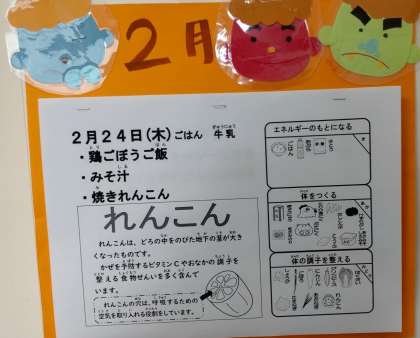 2月
2月24日(木)ごはん 牛乳
・鶏ごぼうご飯
・みそ汁
・焼きれんこん
れんこん
れんこんは、どろの中をのびた地下の茎が大き
くなったものです。
かぜを予防するビタミンCやおなかの調子を
整える食物せんいを多く含んで
います。
れんこんの穴は、呼吸するための
空気を取り入れる役割をしています。
エネルギーのもとになる
体をつくる
体の調子を整える